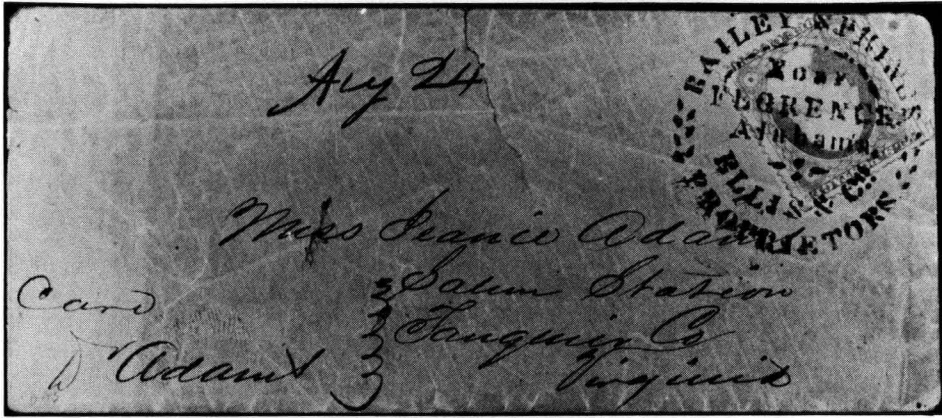 Aug 24
BAILEY & PHILLIPS
FLORENCE
Alabama
ELLIS & Co
PROPRIETORS
Miss Adams
Salem Station
Fauquier Co
Virginia
Care
Dr Adams